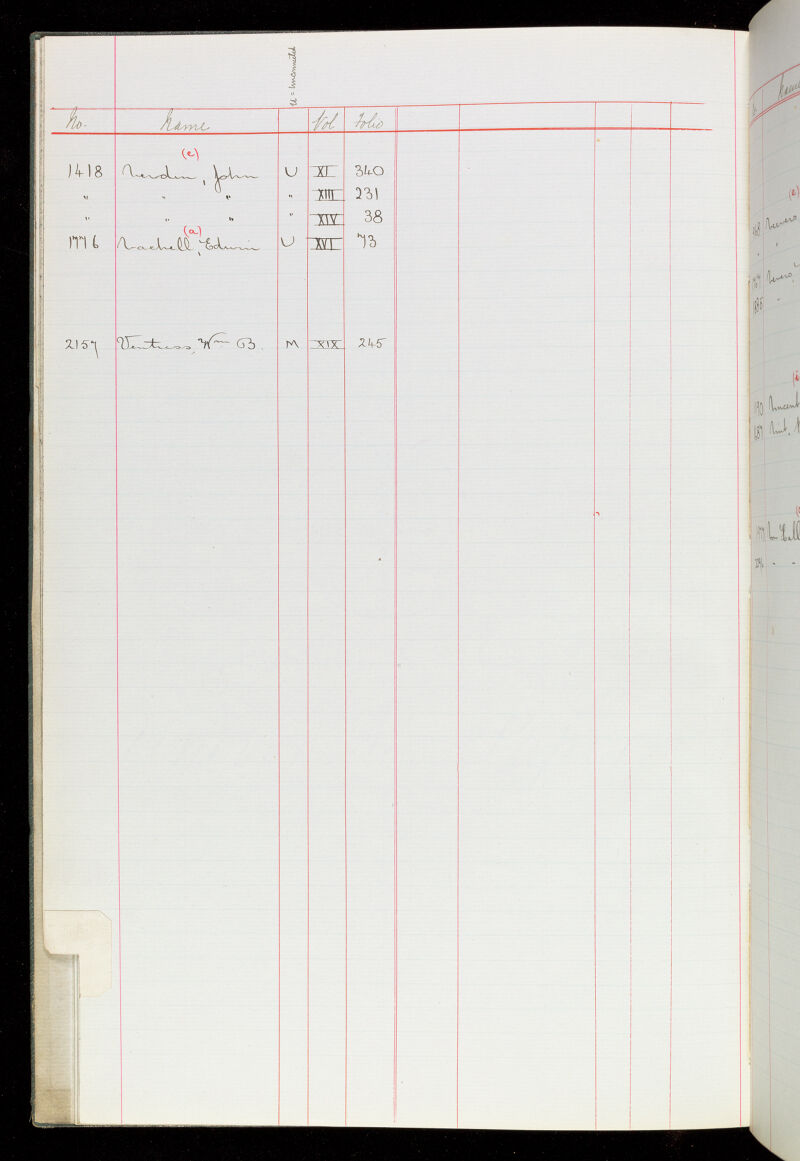 U = Unmarried
No. Name Vol Folio
(e)
1418 Verdin, John U XI 340
" " " " XIII 231
" " " " XIV 38
(a)
1776 Vachell, Edwin U XVI 73
2157 Ventress, Wm B. M XIX 245
Name
(e)
(i)
Vincent